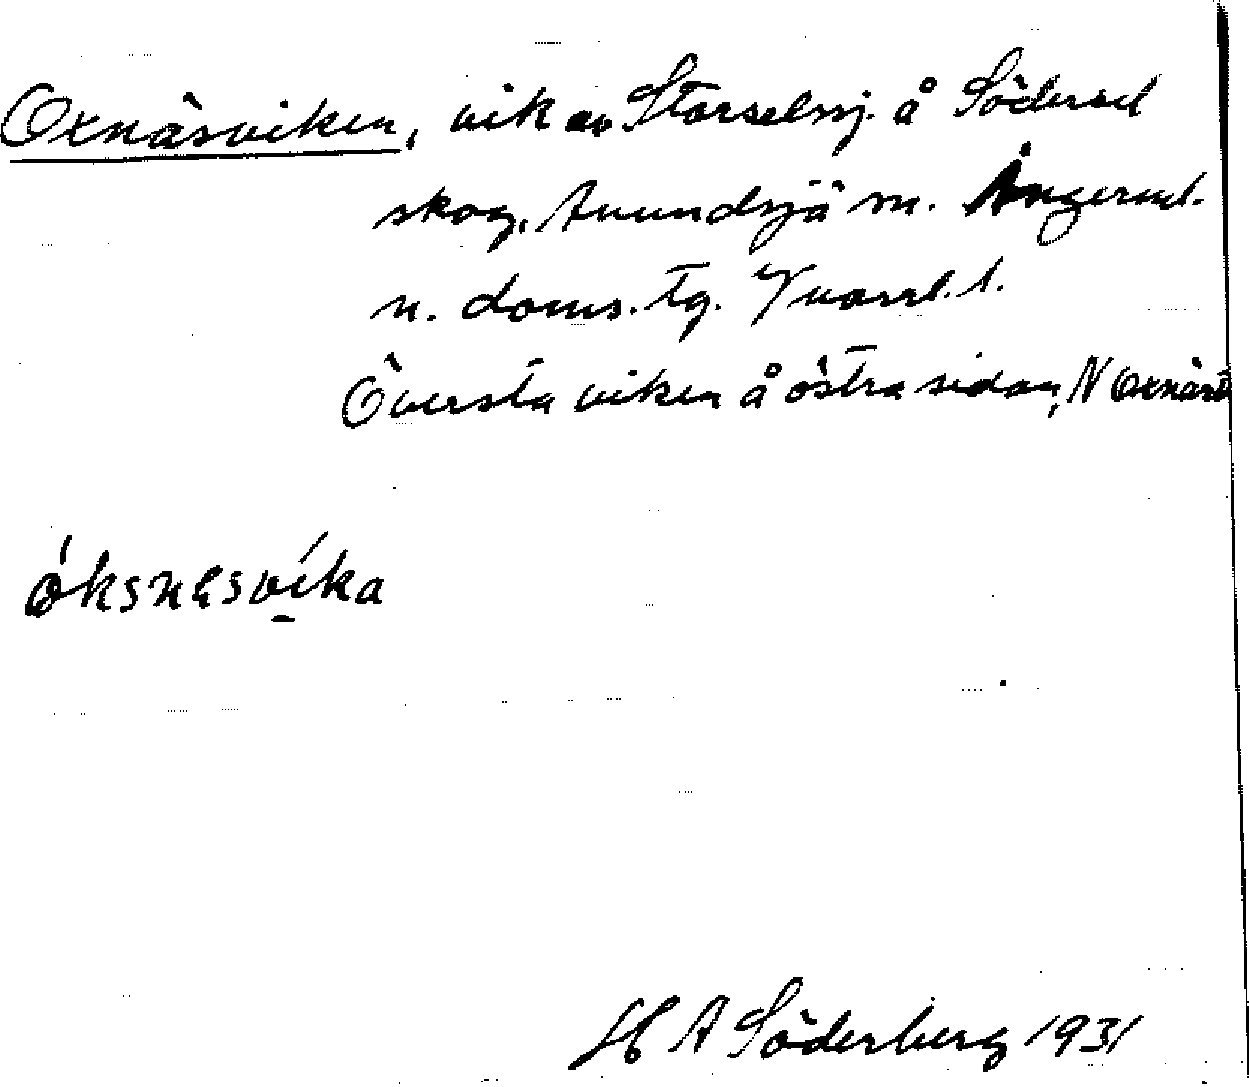 Oxnäsviken, vik av Storselsj. å Södersel
skog, Anundsjä m. Ångerml.
n. doms. tg. Vnorrl. l.
Översta viken å östra sidan, N Oxnäset
óksnesvíka
H A Söderberg 1931